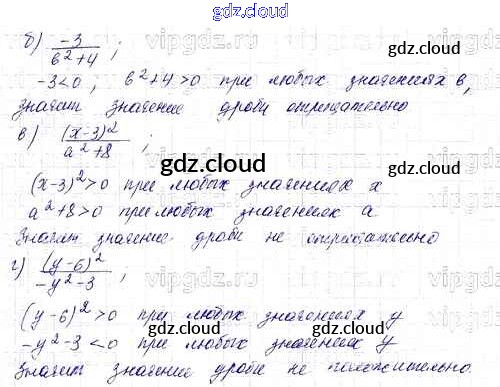 gdz.cloud
б) -3/(b²+4);
gdz.cloud
-3<0, b²+4>0 при любых значениях b,
значит значение дроби отрицательно
в) (x-3)²/(a²+8);
gdz.cloud
(x-3)²>0 при любых значениях x
a²+8>0 при любых значениях a
gdz.cloud
Значит значение дроби не отрицательно
г) (y-6)²/(-y²-3);
gdz.cloud
(y-6)²>0 при любых значениях y
gdz.cloud
-y²-3<0 при любых значениях y
gdz.cloud
Значит значение дроби не положительно.